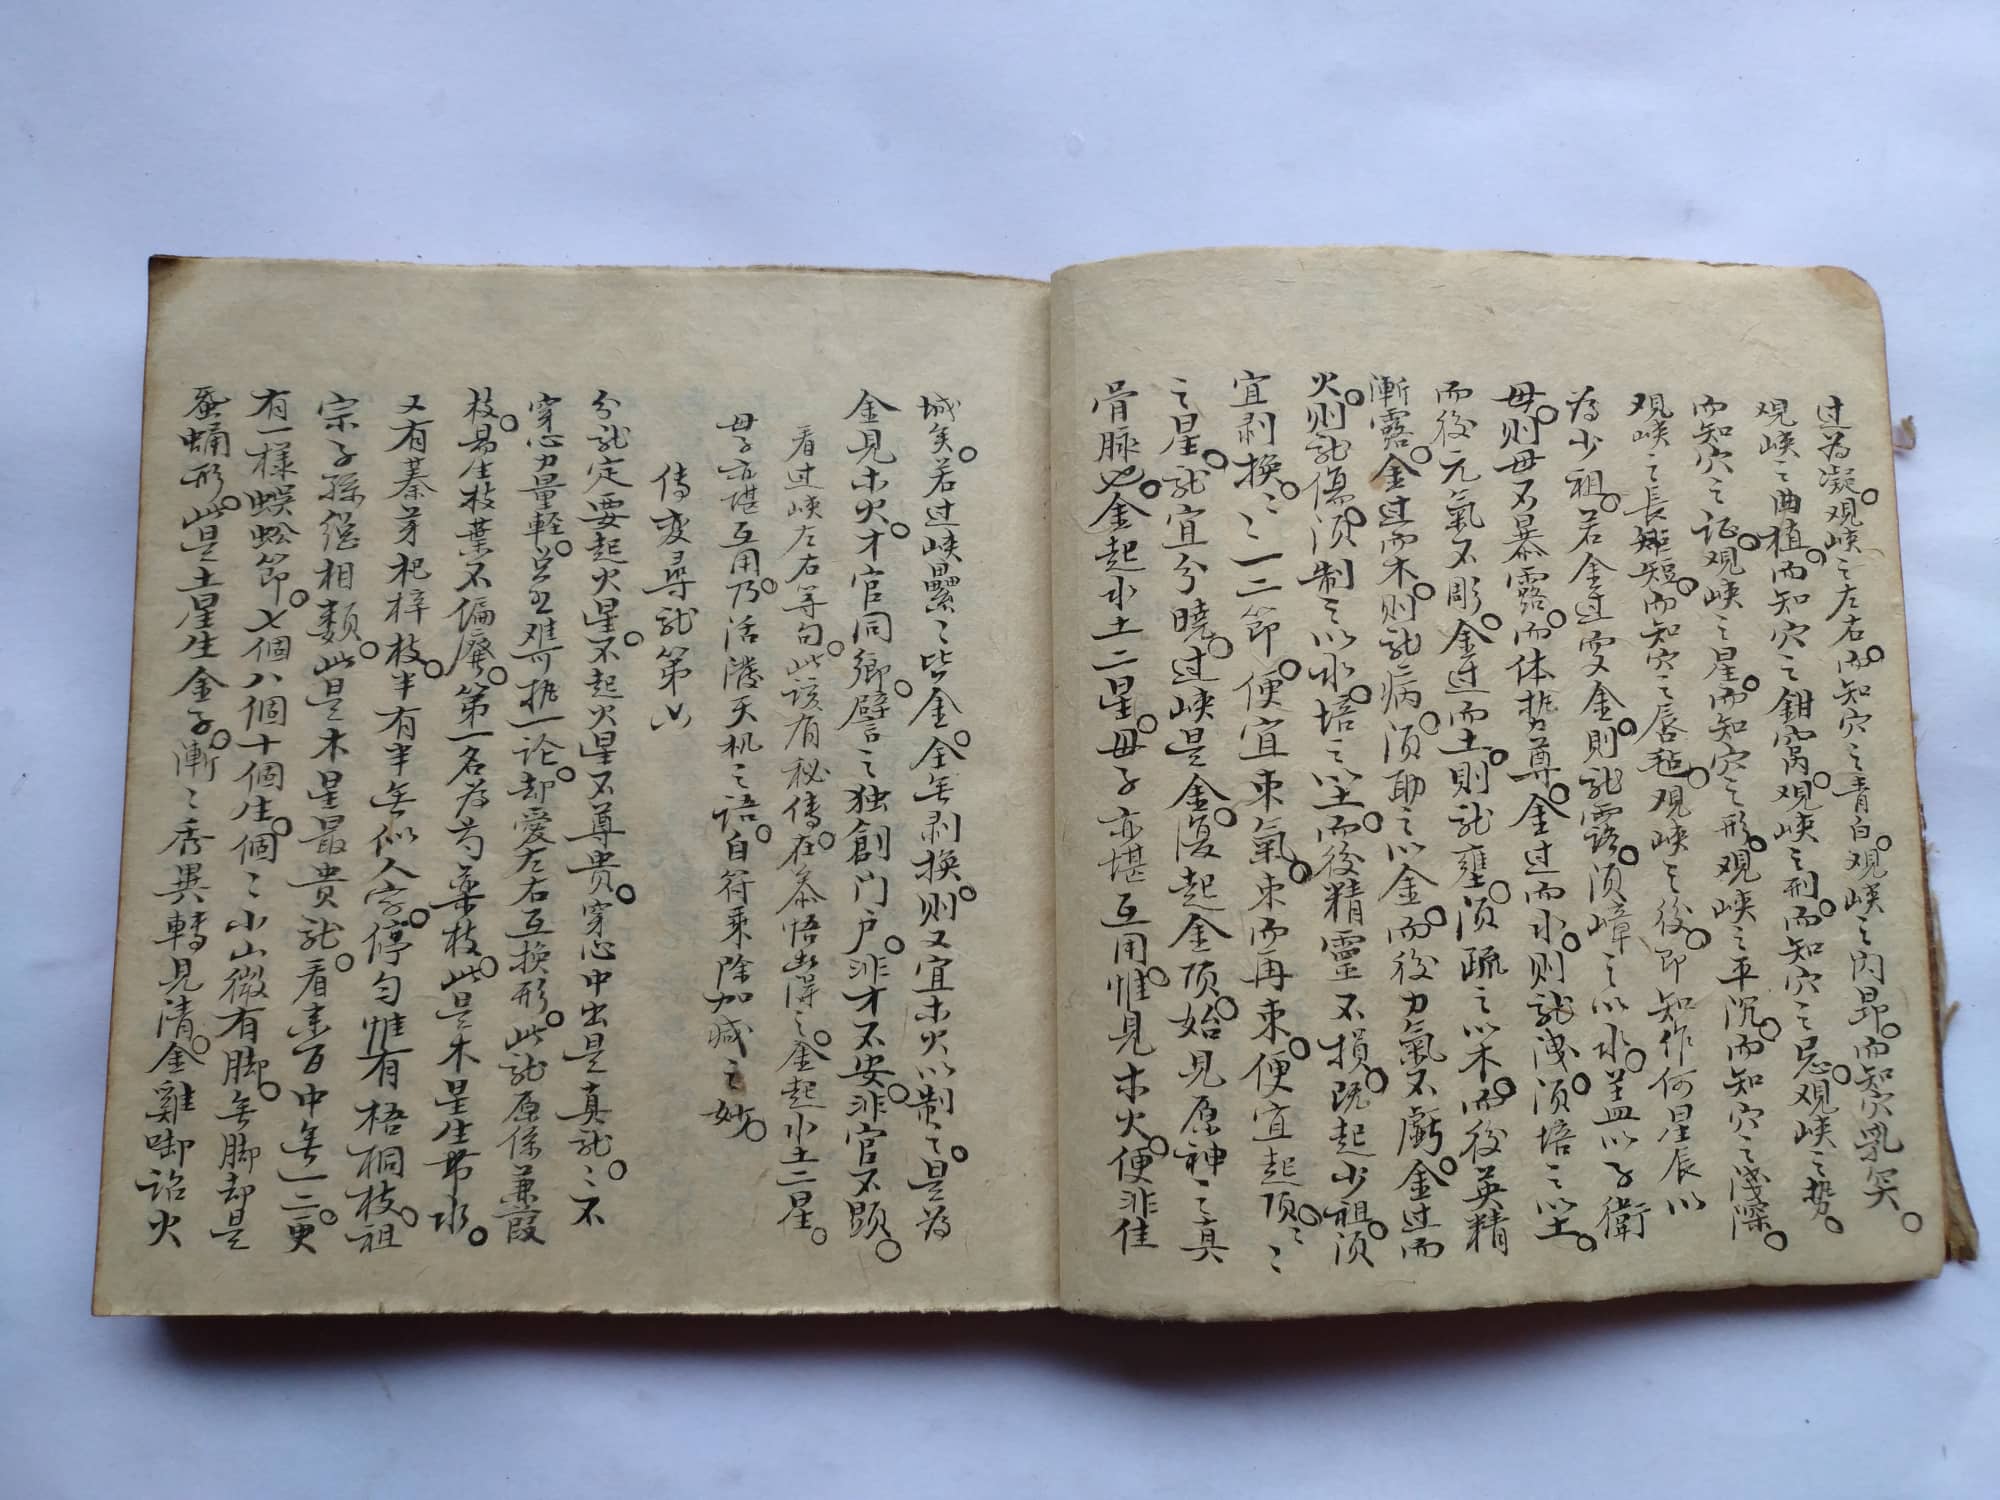 过為凝。观峡之左右。而知穴之青白。观峡之内昂。而知穴乳突。
观峡之曲植。而知穴之鉗窩。观峡之刑。而知穴之忌。观峡之势。
而知穴之证。观峡之星。而知穴之形。观峡之平沉。而知穴之浅深。
观峡之長短。而知穴之唇毡。观峡之後。即知作何星辰以
為少祖。若金过而又金。則龙露。须嶂之以水。盖以子衛
母。则母不暴露。而体势尊。金过而水。则龙洩。须培之以土。
而後元氣不彫。金过而土。則龙壅。须疏之以木。而後英精
漸露。金过而木。则龙病。须助之以金。而後力氣不虧。金过而
火。则龙傷。须制之以水。培之以土。而後精靈不損。既起少祖。须
宜剥换。之一二節。便宜束氣。束而再束。便宜起顶。
之星。龙宜分曉。过峡是金。復起金顶。始見原神之真
骨脉也。金起水土二星。母子亦堪互用。惟見木火。便非佳
城矣。若过峡壘々皆金。全無剥换。则又宜木火以制之。是為
金見木火。才官同鄉。譬之独創门户。非才不安。非官不顕。
看过峡左右等句。此該有秘傳。在参悟出得之。金起水土二星。
母子亦堪互用。乃活潑天机之語。自符乘除加减之妙。
傳变尋龙第六
分龙定要起火星。不起火星不尊贵。穿心中出是真龙。々不
穿心力量軽。总之难可执一论。却愛左右互换形。此龙原係蒹葭
枝。易生枝葉不偏廢。第一名為芍薬枝。此是木星生帶水。
又有蓁芽杞梓枝。半有半無似人字。停匀惟有梧桐枝。祖
宗子孫總相類。此是木星最贵龙。看来百中無一二。更
有一樣蜈蚣節。七個八個十個生。個々小山微有脚。無脚却是
蚕蛹形。此是土星生金子。漸々秀異轉見清。金雞啣诏火